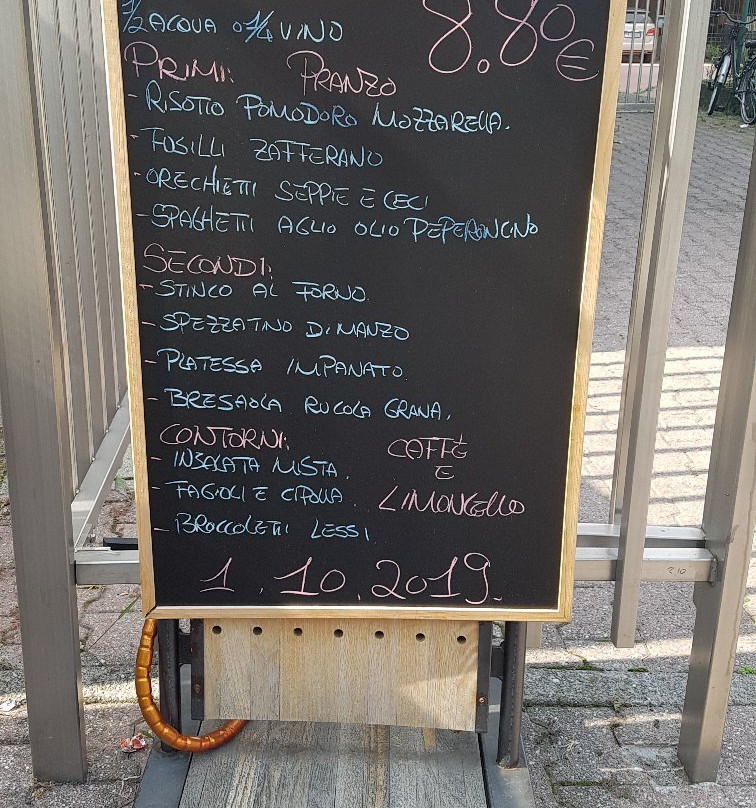 1/2 ACQUA O 1/4 VINO
8.80€
PRIMI: PRANZO
- RISOTTO POMODORO MOZZARELLA.
- FUSILLI ZAFFERANO
- ORECHIETTI SEPPIE E CECI
- SPAGHETTI AGLIO OLIO PEPERONCINO
SECONDI:
- STINCO AL FORNO.
- SPEZZATINO DI MANZO
- PLATESSA IMPANATO.
- BRESAOLA RUCOLA GRANA.
CONTORNI:
- INSALATA MISTA.
- FAGIOLI E CIPOLLA.
- BROCCOLETTI LESSI.
CAFFÈ
E
LIMONCELLO
1.10.2019.